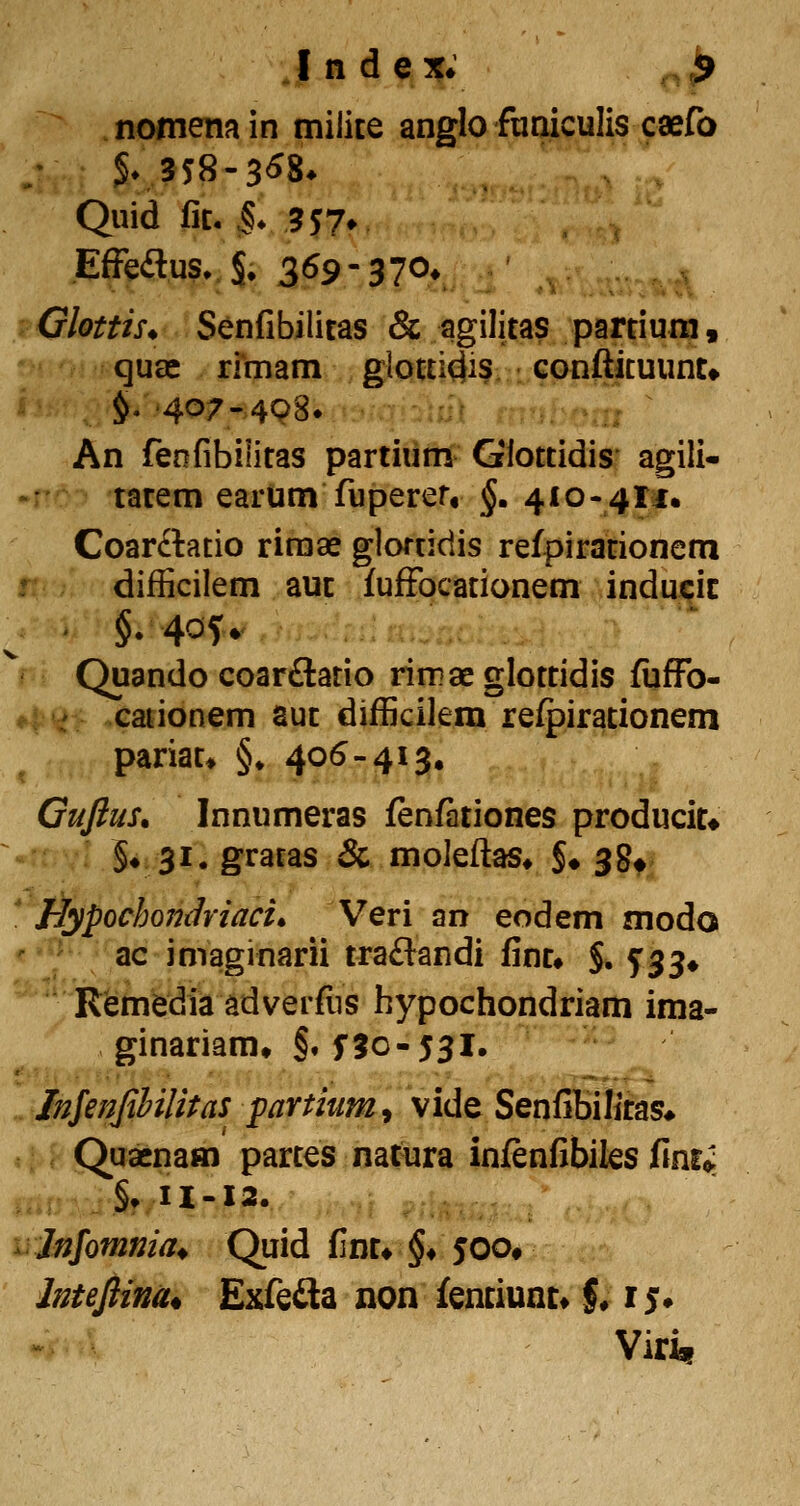 Index. 9
nomena in milite anglo funiculis cæſo
§. 358-368.
Quid fit. §. 357.
Effectus. §. 369-370.
Glottis. Senſibilitas & agilitas partium,
quæ rimam glottidis conſtituunt.
§. 407-408.
An ſenſibilitas partium Glottidis agili-
tatem earum ſuperet. §. 410-411.
Coarctatio rimæ glottidis reſpirationem
difficilem aut ſuffocationem inducit
§. 405.
Quando coarctatio rimæ glottidis ſuffo-
cationem aut difficilem reſpirationem
pariat. §. 406-413.
Guſtus. Innumeras ſenſationes producit.
§. 31. gratas & moleſtas. §. 38.
Hypochondriaci. Veri an eodem modo
ac imaginarii tractandi ſint. §. 533.
Remedia adverſus hypochondriam ima-
ginariam. §. 530-531.
Inſenſibilitas partium, vide Senſibilitas.
Quænam partes natura inſenſibiles ſint.
§. 11-12.
Inſomnia. Quid ſint. §. 500.
Inteſtina. Exſecta non ſentiunt. §. 15.
Viri-